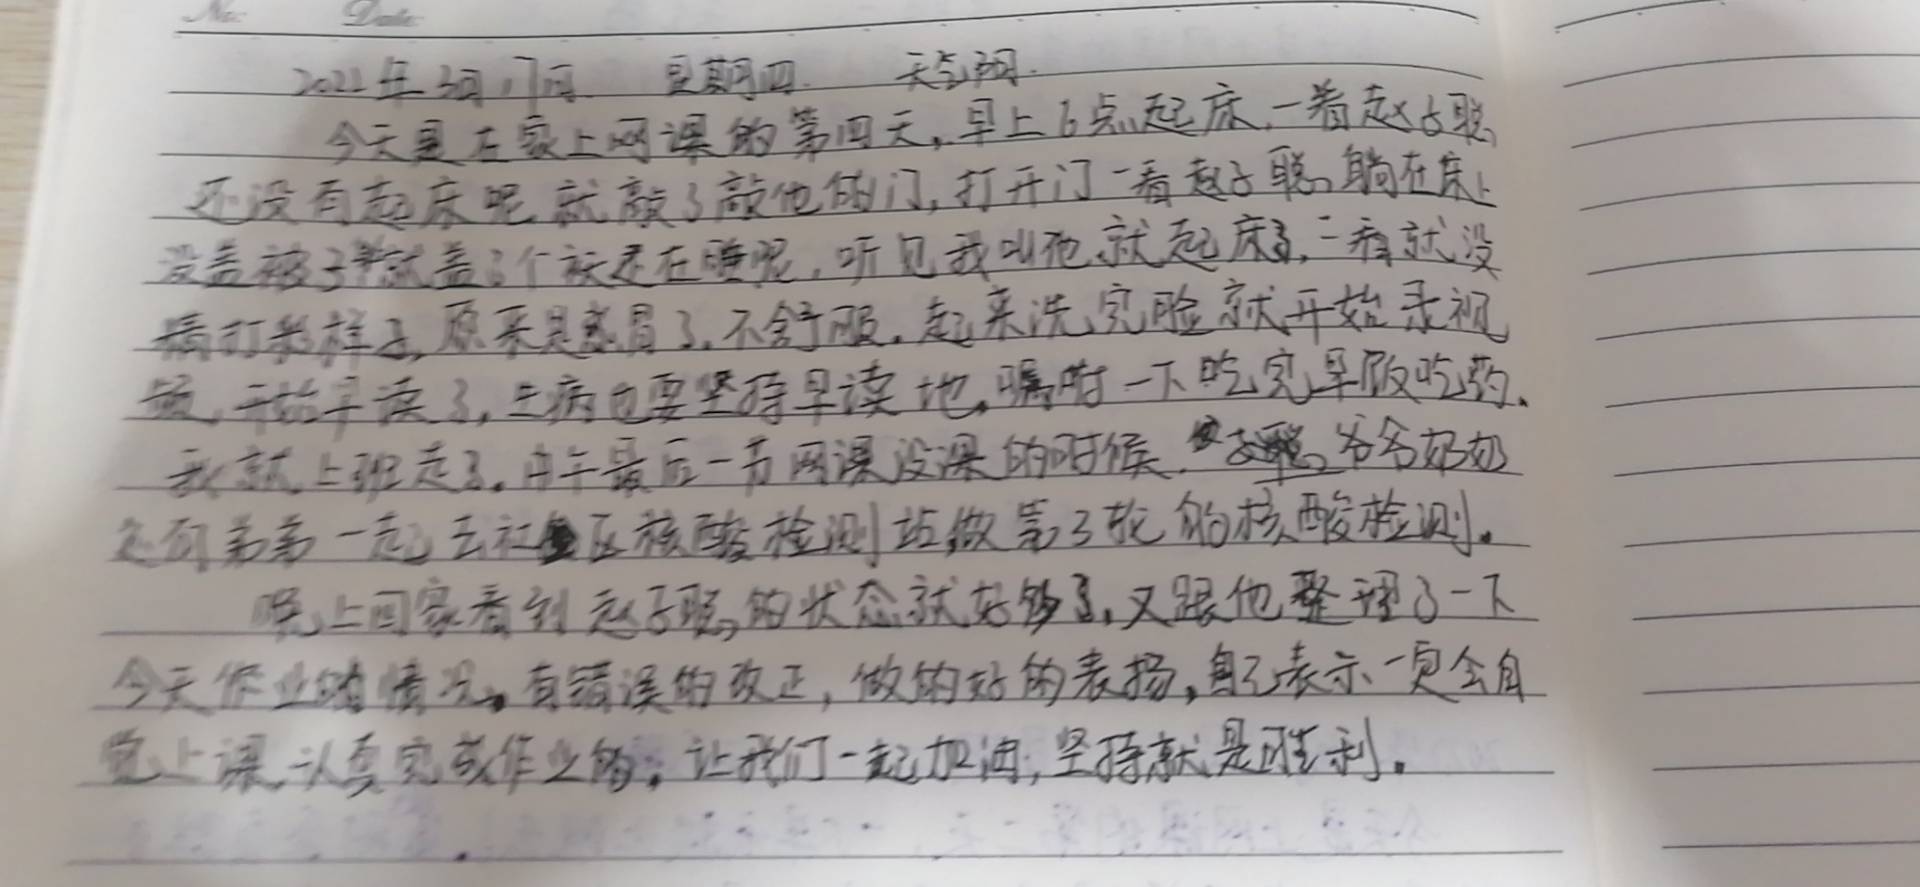 No: Date:
2022年3月17日 星期四 天气阴.
今天是在家上网课的第四天,早上6点起床,一看赵子聪
还没有起床呢就敲了敲他的门,打开门一看赵子聪躺在床上
没盖被子就盖了个袄还在睡呢,听见我叫他就起床了,一看就没
精打彩样子,原来是感冒了,不舒服。起来洗完脸就开始录视
频,开始早读了,生病也要坚持早读地。嘱咐一下吃完早饭吃药。
我就上班走了。中午最后一节网课没课的时候,子聪爷爷奶奶
还有弟弟一起去社区核酸检测站做第3轮的核酸检测。
晚上回家看到赵子聪的状态就好多了,又跟他整理了一下
今天作业的情况。有错误的改正,做的好的表扬,自己表示一定会自
觉上课,认真完成作业的。让我们一起加油,坚持就是胜利。